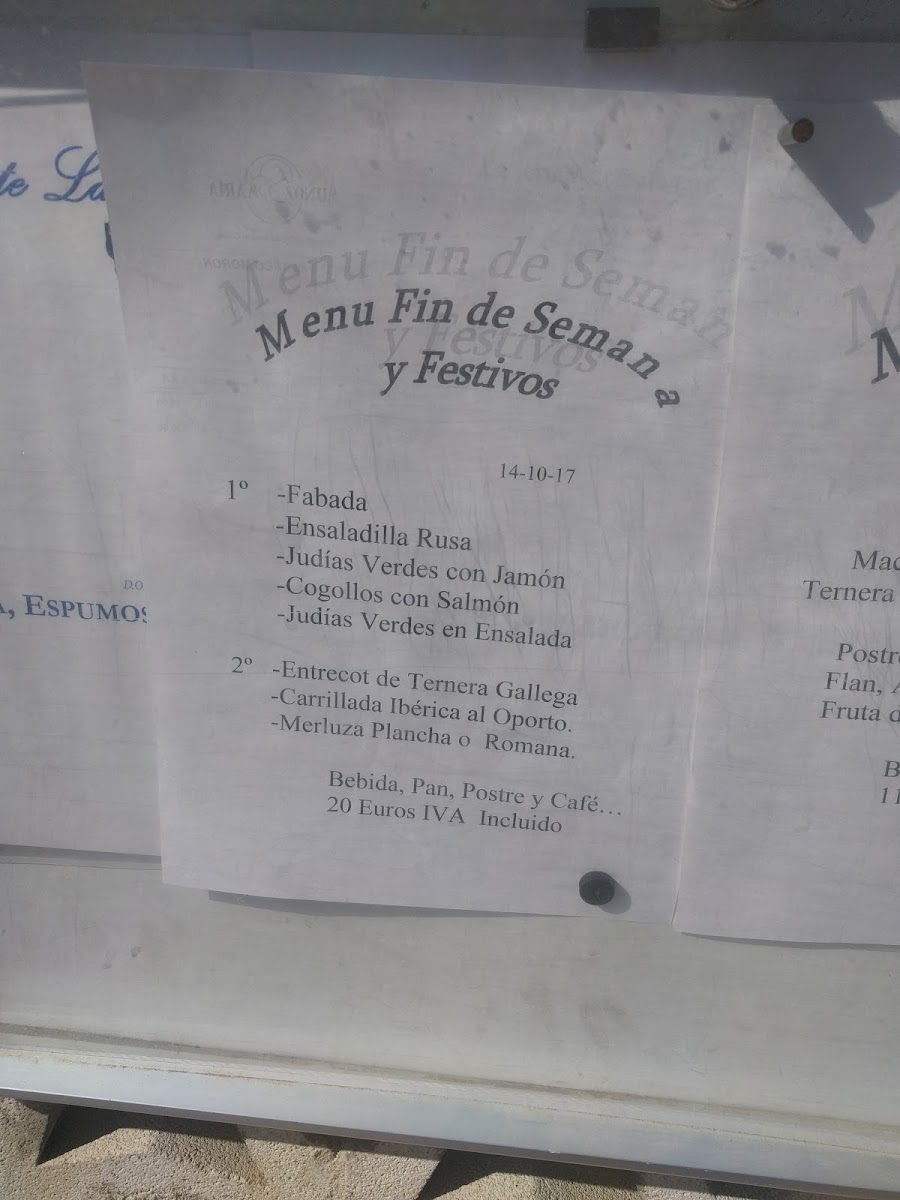 te La
D.O
A, ESPUMOS
Menu Fin de Semana
y Festivos
14-10-17
1º -Fabada
-Ensaladilla Rusa
-Judías Verdes con Jamón
-Cogollos con Salmón
-Judías Verdes en Ensalada
2º -Entrecot de Ternera Gallega
-Carrillada Ibérica al Oporto.
-Merluza Plancha o Romana.
Bebida, Pan, Postre y Café...
20 Euros IVA Incluido
M
Mac
Ternera
Postre
Flan, A
Fruta d
B
11